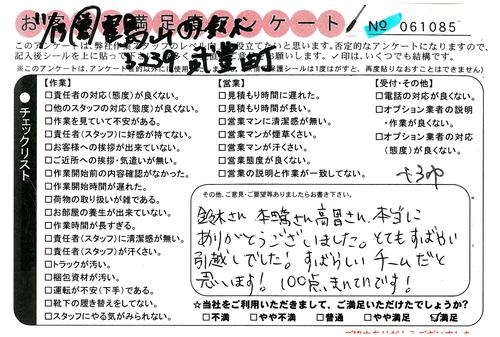 お客 満足 アンケート
No 061085
このアンケートは、弊社作業スタッフのレベル向 役立てないと思います。否定的なアンケートになりますので、
【作業】
□責任者の対応(態度)が良くない。
□他のスタッフの対応(態度)が良くない。
□作業を見ていて不安がある。
□責任者(スタッフ)に好感が持てない。
□お客様への挨拶が出来ていない。
□ご近所への挨拶・気遣いが無い。
□作業開始前の内容確認がなかった。
□作業開始時間が遅れた。
□荷物の取り扱いが雑である。
□お部屋の養生が出来ていない。
□作業時間が長すぎる。
□責任者(スタッフ)に清潔感が無い。
□責任者(スタッフ)が汗くさい。
□トラックが汚い。
□梱包資材が汚い。
□運転が不安(下手)である。
□靴下の履き替えをしてない。
□スタッフにやる気がみられない。
【営業】
□見積もり時間に遅れた。
□見積もり時間が長い。
□営業マンに清潔感が無い。
□営業マンが煙草くさい。
□営業マンが汗くさい。
□営業態度が良くない。
□営業の説明と作業が一致してない。
【受付・その他】
□電話の対応が良くない。
□オプション業者の説明
・作業が良くない。
□オプション業者の対応
(態度)が良くない。
チェックリスト
その他、ご意見・ご要望等ありましたらお書き下さい。
鈴木さん 本嶋さん 高畠さん、本当に
ありがとうございました。とてもすばやい
引越しでした!すばらしいチームだと
思います! 100点、まんてんです!
☆当社をご利用いただきまして、ご満足いただけたでしょうか?
□不満 □やや不満 □普通 □やや満足 ☑満足